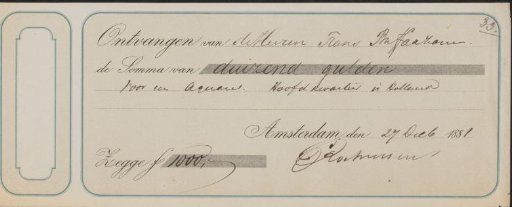 33.
Ontvangen van de Heeren Frans Buffa & Zoonen
de Somma van duizend gulden
voor een Aquarel. Hoofdkwartier in Holland
Amsterdam, den 27 Dec 1881
Zegge f 1000,-